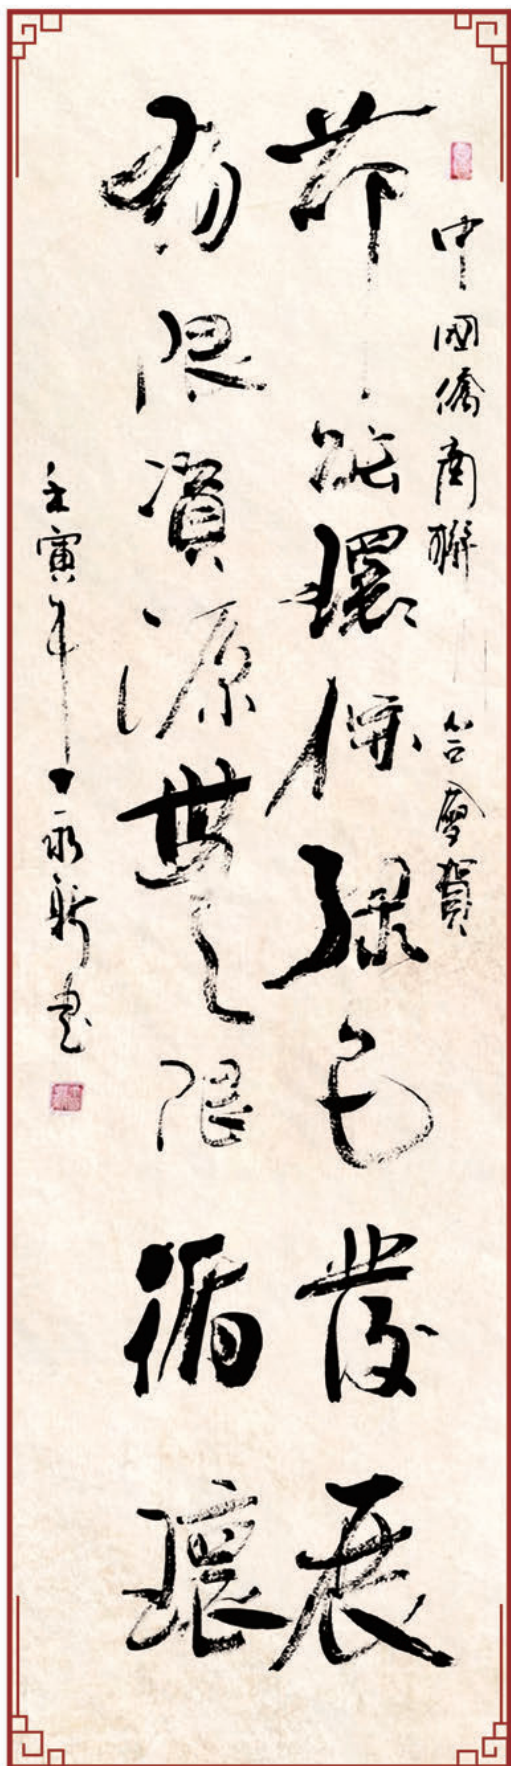 中國僑商聯合會賀
节能環保绿色發展
有限資源無限循環
壬寅年永新书